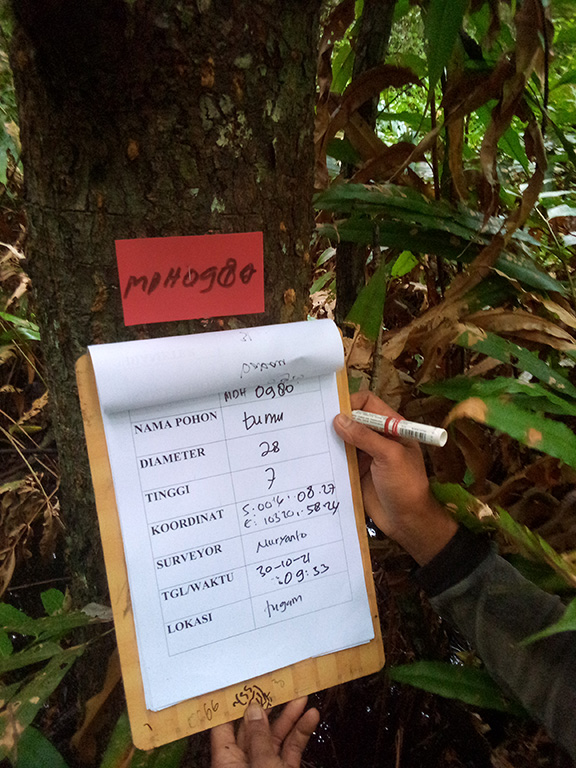 MDH0980
MDH 0980
NAMA POHON tumu
DIAMETER 28
TINGGI 7
KOORDINAT S:00°4'.08.27
E:103°20'.58.24
SURVEYOR Nuryanto
TGL/WAKTU 30-10-21
:09:33
LOKASI